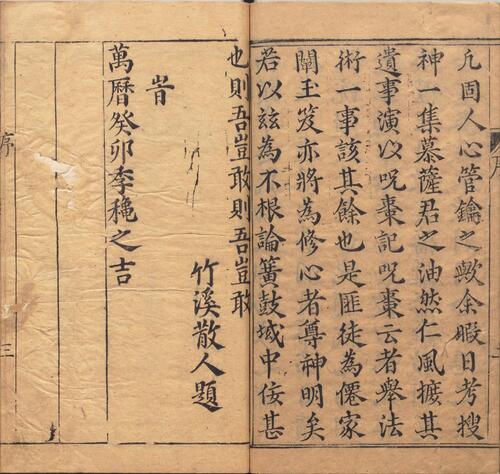 凢固人心管鑰之歟余暇日考搜
神一集慕薩君之油然仁風摭其
遺事演以咒棗記咒棗云者舉法
術一事該其餘也是匪徒為僊家
闡玉笈亦將為修心者尊神明矣
若以茲為不根論簧鼓域中佞甚
也則吾豈敢則吾豈敢
竹溪散人題
旹
萬曆癸卯季穐之吉
序
三